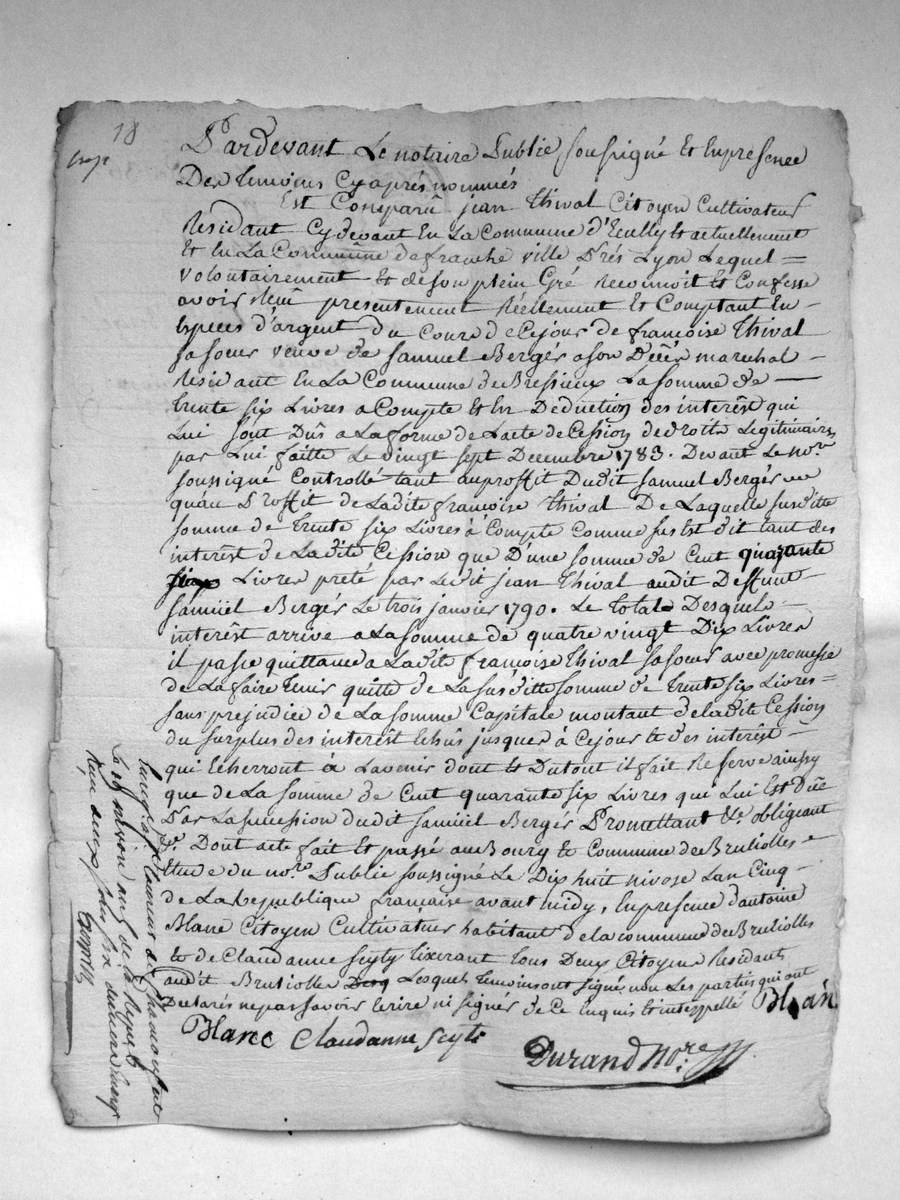 18
Pardevant Le notaire Public soussigné Et Enpresence
Des temoins Cy aprés nommés
Est Comparü jean Thival Citoyen Cultivateur
Résidant Cy devant En La Commune d'Ecully Et actuellement
Et En La Commüne defranche ville Prés Lyon Lequel =
volontairement Et deson plein Gré Reconnoit Et Confesse
avoir Reçû presentement Réellement Et Comptant En -
Especes d'argent du Cours de Cejour de françoise Thival
Sasoeur veuve de Samuel Bergér ason Décér marechal -
Résidant En La Commune de Bressieux La somme de —
trente six Livres a Compte Et En Déduction des interêt qui
Lui sont Dûs a La forme de Lacte de Cession de droits Legitimaires
par Lui faitte Le vingt sept Decembre 1783. Devant Le no.re
soussigné Controllé tant auproffit Dudit Samuel Bergér
qu'au Proffit de Ladite françoise Thival De Laquelle susditte
somme de trente six Livres à Compte Comme sus Est dit tant des
interêt de Ladite Cession que D'une somme de Cent quarante
six Livres preté par Ledit jean Thival audit Deffunt
Samüel Bergér Le trois janvier 1790. Le total Desquels -
interêt arrive a La somme de quatre vingt Dix Livres
il passe quittance a Ladite françoise Thival sasoeur avec promesse
de La faire tenir quitte de La susditte somme de trente six Livres =
sans prejudice de La somme Capitale montant de ladite Cession
du surplus des interêt Echûs jusques à Cejour Et des interêt -
qui Echerront à Lavenir dont Et Dutout il fait Reserve ainsy
que de La somme de Cent quarante six Livres qui Lui Est dûe
Par La succession dudit Samüel Bergér Promettant &c obligeant
&c. Dont acte fait Et passé au Bourg Et Commune de Brusiolles =
Etude du no.re Public soussigné Le Dix huit nivose Lan Cinq -
de La Republique francaise avant midy, Enpresence d'antoine
Blanc Citoyen Cultivateur habitant de la commune de Brusiolles
Et de Claudanne Seyty tixerant tous Deux Citoyens Residants
audit Brusiolles Lesquels temoins ont signé non Les partis qui ont
Declarés ne pas savoir Ecrire ni signér de Ce Enquis Et interpellé
Blanc Claudanne Seyti
Durand No.re